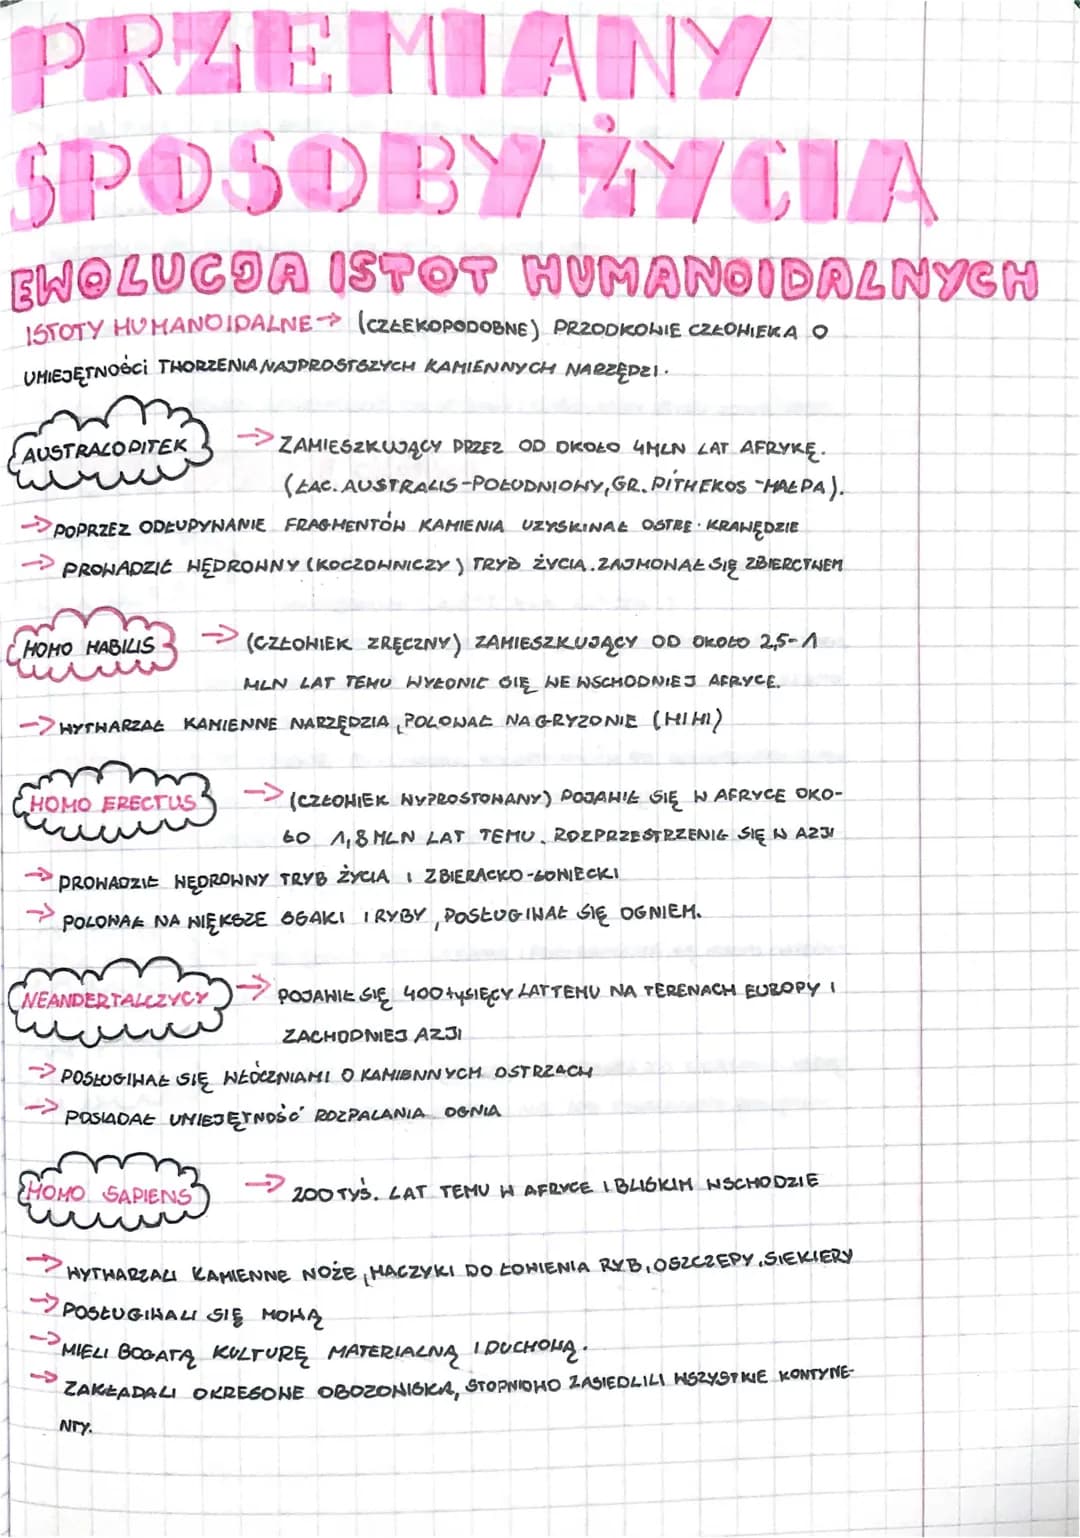 PRZEMIANY
SPOSOBY ŻYCIA
EWOLUCJA ISTOT HUMANOIDALNYCH
ISTOTY HUMANOIDALNE → (CZŁEKOPODOBNE) PRZODKOWIE CZŁOWIEKA O
UMIEJĘTNOŚCI TWORZENIA NAJPROSTSZYCH KAMIENNYCH NARZĘDZI.
AUSTRALOPITEK → ZAMIESZKUJĄCY PRZEZ OD OKOŁO 4MLN LAT AFRYKĘ.
(ŁAC. AUSTRALIS-POŁUDNIOWY, GR. PITHEKOS -MAŁPA).
→ POPRZEZ ODŁUPYWANIE FRAGMENTÓW KAMIENIA UZYSKIWAŁ OSTRE KRAWĘDZIE
→ PROWADZIŁ WĘDROWNY (KOCZOWNICZY) TRYB ŻYCIA. ZAJMOWAŁ SIĘ ZBIERCTWEM
HOMO HABILIS → (CZŁOWIEK ZRĘCZNY) ZAMIESZKUJĄCY OD OKOŁO 2,5-1
MLN LAT TEMU WYŁONIŁ SIĘ WE WSCHODNIEJ AFRYCE.
→ WYTWARZAŁ KAMIENNE NARZĘDZIA, POLOWAŁ NA GRYZONIE (HIHI)
HOMO ERECTUS → (CZŁOWIEK WYPROSTOWANY) POJAWIŁ SIĘ W AFRYCE OKO-
ŁO 1,8 MLN LAT TEMU. ROZPRZESTRZENIŁ SIĘ W AZJI
→ PROWADZIŁ WĘDROWNY TRYB ŻYCIA I ZBIERACKO-ŁOWIECKI
→ POLOWAŁ NA WIĘKSZE SSAKI I RYBY, POSŁUGIWAŁ SIĘ OGNIEM.
NEANDERTALCZYCY → POJAWIŁ SIĘ 400 tySIĘCY LAT TEMU NA TERENACH EUROPY I
ZACHODNIEJ AZJI
→ POSŁUGIWAŁ SIĘ WŁÓCZNIAMI O KAMIENNYCH OSTRZACH
→ POSIADAŁ UMIEJĘTNOŚĆ ROZPALANIA OGNIA
HOMO SAPIENS → 200 TYŚ. LAT TEMU W AFRYCE I BLISKIM WSCHODZIE
→ WYTWARZALI KAMIENNE NOŻE, HACZYKI DO ŁOWIENIA RYB, OSZCZEPY, SIEKIERY
→ POSŁUGIWALI SIĘ MOWĄ
→ MIELI BOGATĄ KULTURĘ MATERIALNĄ I DUCHOWĄ.
→ ZAKŁADALI OKRESOWE OBOZOWISKA, STOPNIOWO ZASIEDLILI WSZYSTKIE KONTYNE-
NTY.